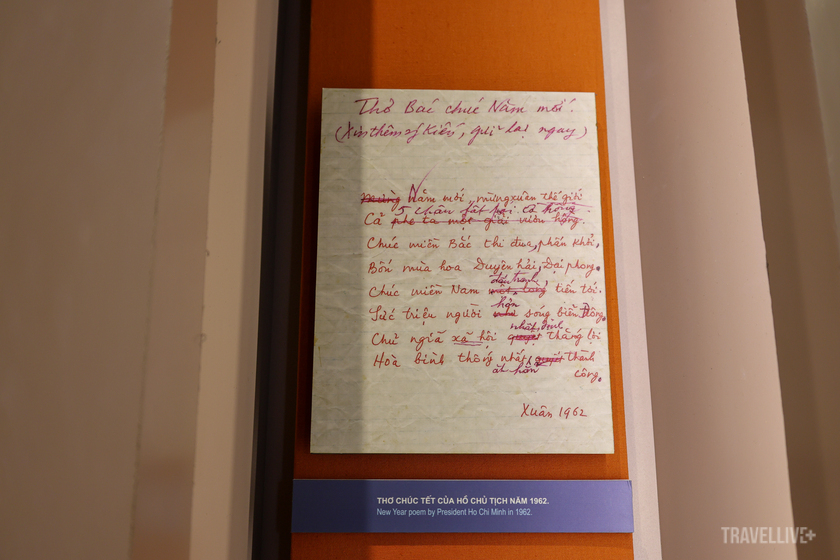 Thơ Bác chúc Năm mới.
(Xin thêm ý Kiến, gửi lại ngay)
Mừng Năm mới, mừng xuân thế giới
5 châu cờ hồng.
Cả phe ta một giải vườn hồng.
Chúc miền Bắc thi đua, phấn khởi,
Bốn mùa hoa Duyên hải, Đại phong.
đấu tranh,
Chúc miền Nam tiến tới.
hơn
Sức triệu người như sóng biển Đông.
nhất định
Chủ nghĩa xã hội quyết thắng lợi
Hoà bình thống nhất, quyết thành
ắt hẳn công.
Xuân 1962
THƠ CHÚC TẾT CỦA HỒ CHỦ TỊCH NĂM 1962.
New Year poem by President Ho Chi Minh in 1962.
TRAVELLIVE+